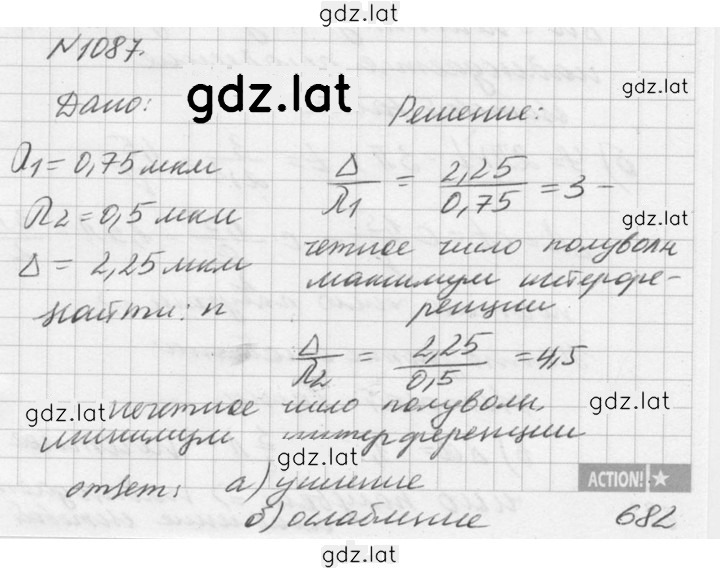 gdz.lat
N1087.
gdz.lat
Дано:
gdz.lat
Решение:
λ1 = 0,75 мкм
λ2 = 0,5 мкм
Δ = 2,25 мкм
Найти: n
Δ/λ1 = 2,25/0,75 = 3 –
gdz.lat
четное число полуволн
максимум интерфе-
ренции
Δ/λ2 = 2,25/0,5 = 4,5
gdz.lat
нечетное число полуволн,
gdz.lat
минимум интерференции
gdz.lat
ACTION!
ответ: а) усиление
б) ослабление
682
gdz.lat